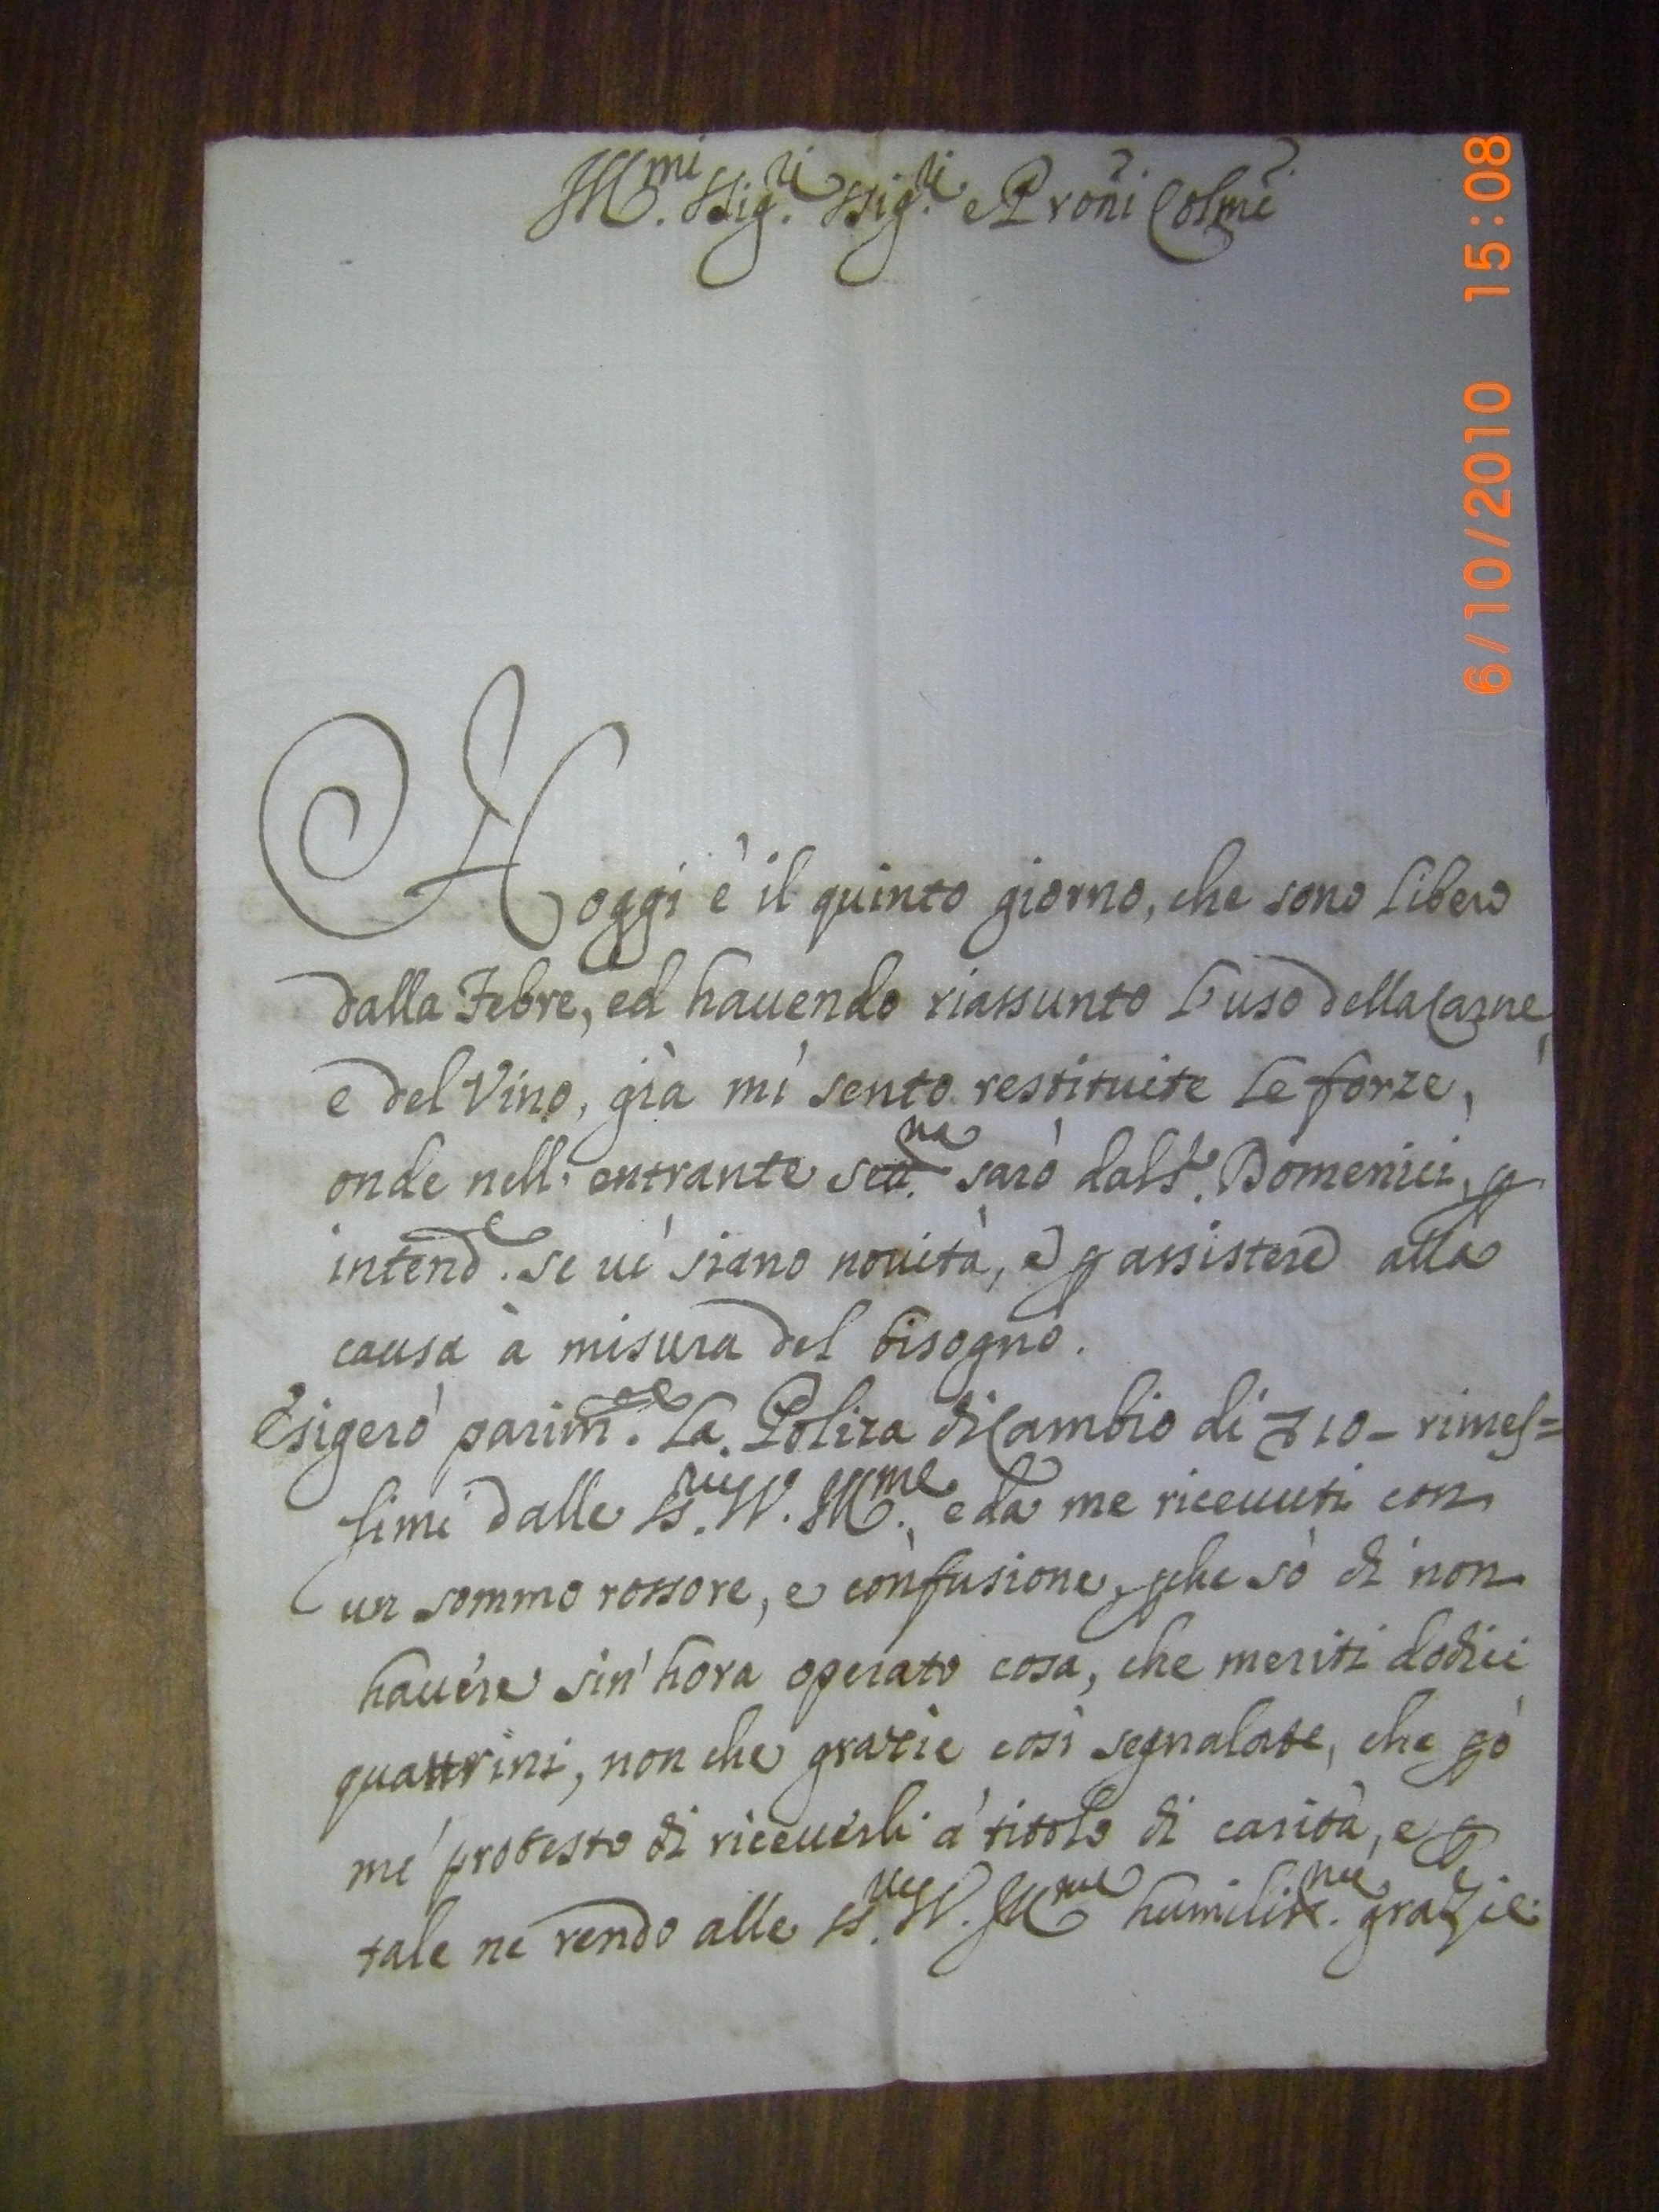 Ill.mi SSig.ri SSig.ri e Proñi Colm̃i
Hoggi è il quinto giorno, che sono libero
dalla Febre, ed hauendo riassunto l'uso della Carne,
e del Vino, già mi sento restituite le forze,
onde nell' entrante sett.na sarò dal S.r Domenici, p
intend.e se ui siano nouità, e p assistere alla
causa à misura del bisogno.
Esigerò parim.te la Poliza di Cambio di 10 - rimes=
simi dalle SS.rie VV. Ill.me, e da me riceuuti con
un sommo rossore, e confusione, pche sò di non
hauere sin' hora operato cosa, che meriti dodici
quattrini, non che grazie così segnalate, che pò
mi protesto di riceuerli à titolo di carità, e p
tale ne rendo alle SS.rie VV. Ill.me humiliss.me grazie.
6/10/2010 15:08